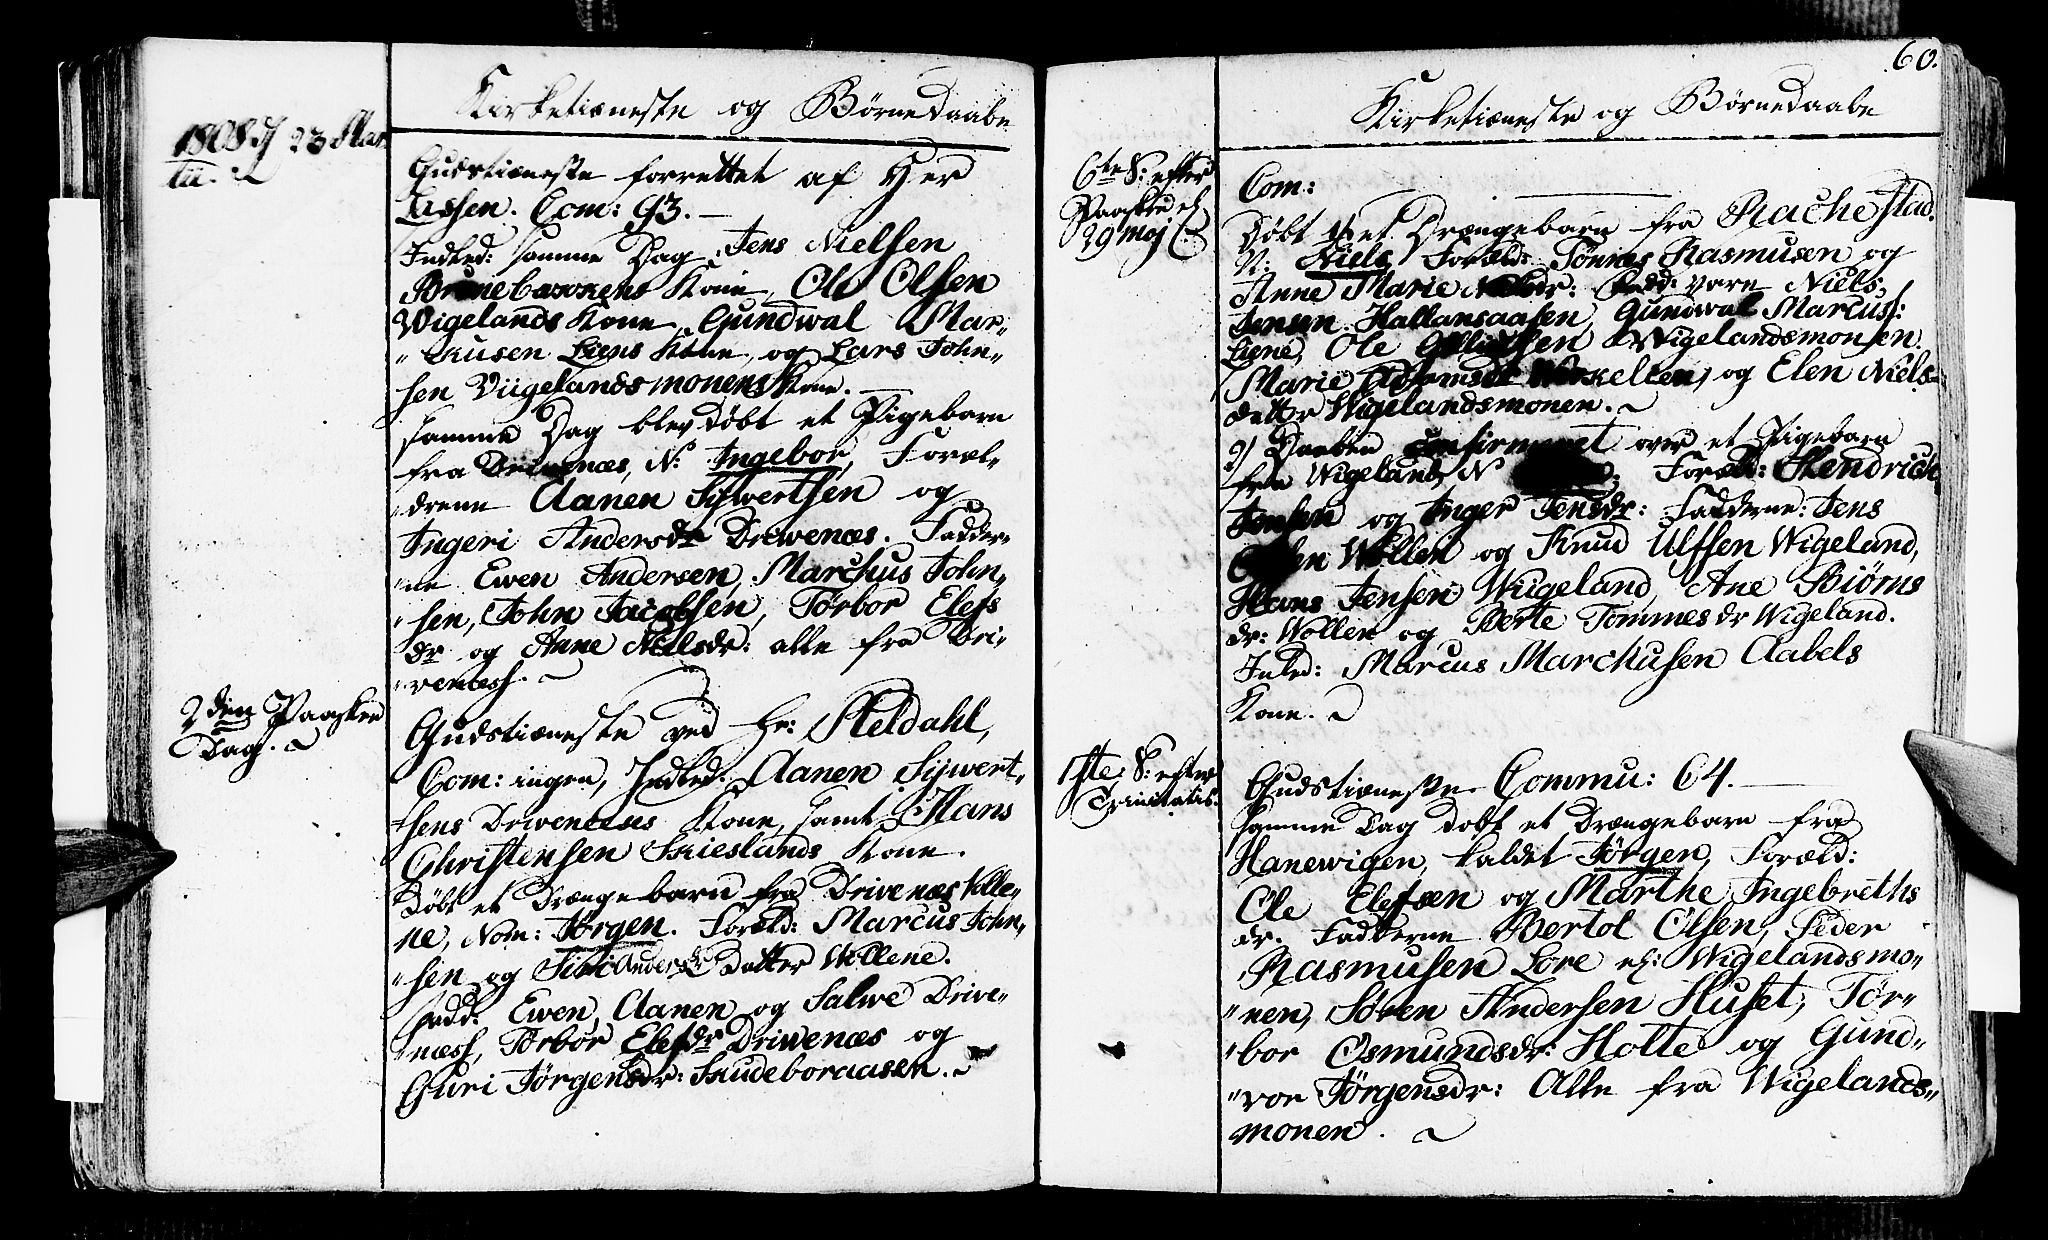 Kirketieneste og Børnedaabe
1808 d 23 Mar-
tii.
Gudstieneste forrettet af Her
Lassen. Com: 93. —
Indled: samme Dag Jens Nielsen
Kone, Ole Olsen
Wigelands Kone, Gundwal Mar-
"kusen Liens Kone, og Lars John-
sen Viigelandsmonens Kone. —
samme Dag blev døbt et Pigebarn
fra Drivenæs, N: Ingebor, Foræl-
"drene Aanen Sijwertsen og
Ingeri Andersdr Driwenæs. Fadder-
"ne Ewen Andersen, Marchus John-
"sen, John Jacobsen, Tørbor Elefs
dr og Anne Nielsdr: alle fra Dri-
"venæss.
2den Paaske
Dag.
Gudstieneste ved Hr: Heldahl,
Com: ingen, Indled: Aanen Sijwert-
"sens Drivenæses Kone, samt Hans
Christensen Skieslands Kone.
Døbt et Drængebarn fra Drivenæs Kille-
ne, Nom: Jørgen. Foræld: Marcus John-
"sen og Siri Anders Datter Wollene.
Fadd: Ewen, Aanen og Salwe Drive-
"næss, Torbor Elefsdr Driwenæs og
Guri Jørgensdr: Skudeboraasen.
60.
Kirketieneste og Børnedaabe
6te S: efter
Paaske el:
29 Maj
Com:
Døbt 1) et Drængebarn fra Rachestad.
N: Niels Foræld: Tønnes Rasmusen og
Anne Marie Fadd: vare Niels
Jensen Hallansaasen, Gundwal Marcuss:
Liene, Ole Wigelandsmonen.
Marie og Elen Niels-
datter Wigelandsmonen.
2) Daaben Confirmeret over et Pigebarn
fra Wigeland, N Foræld: Hendrich
Jensen og Inger Jensdr: Fadderne: Jens
Wollen og Knud Ulfsen Wigeland,
Hans Jensen Wiigeland, Ane Biørns
dr: Wollen og Berte Tommesdr Wigeland.
Inled: Marcus Marchusen Aabels
Kone.
1ste S: efter
Trinitatis.
Gudstieneste Commu: 64. —
Samme Dag døbt et Drængebarn fra
Hanewigen, kaldet Jørgen, Foræld:
Ole Elefsen og Marthe Ingebreths
dr. Fadderne Bertol Olsen, Peder
Rasmusen Løre el: Wigelandsmo-
"nen, Søren Andersen Huset, Tør-
"bor Osmundsdr: Holte og Gund-
"vor Jørgensdr: Alle fra Wigelands-
monen.